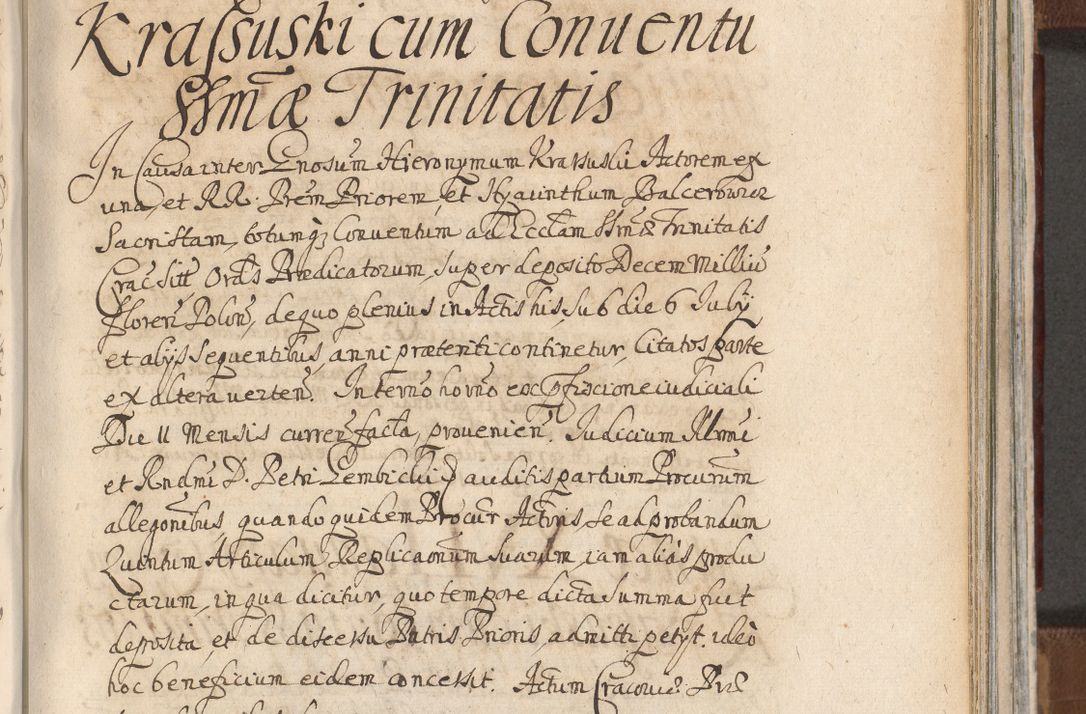 Krassuski cum Conuentu
SSmæ Trinitatis
In Causa inter Gnosum Hieronymum Krassuski Actorem ex
una, et RR. Prem Priorem, et Hyacinthum Balcerowicz
Sacristam, totumq3 Conuentum ad Ecclam SSmæ Trinitatis
Crac sitt Ords Prædicatorum, super deposito Decem Milliu
floren Polon, de quo plenius in Actis his, sub die 6 July
et alijs sequentibus, anni præteriti continetur, Citatos parte
ex altera verten. In termo horno ex pfixcione iudiciali
Die 11 Mensis curren facta, prouenien. Iudicium Illmi
et Rndmi D. Petri Gembicki auditis partium Procurum
allegonibus, quandoquidem Procur Actoris, se ad probandum
Quentum Articulum Replicaonum suarum, iam alias produ
ctarum, in qua dicitur, quo tempore dicta summa fuit
deposita, et de discessu Patris Prioris, admitti petyt. ideo
hoc beneficium eidem concessit. Actum Cracouiæ